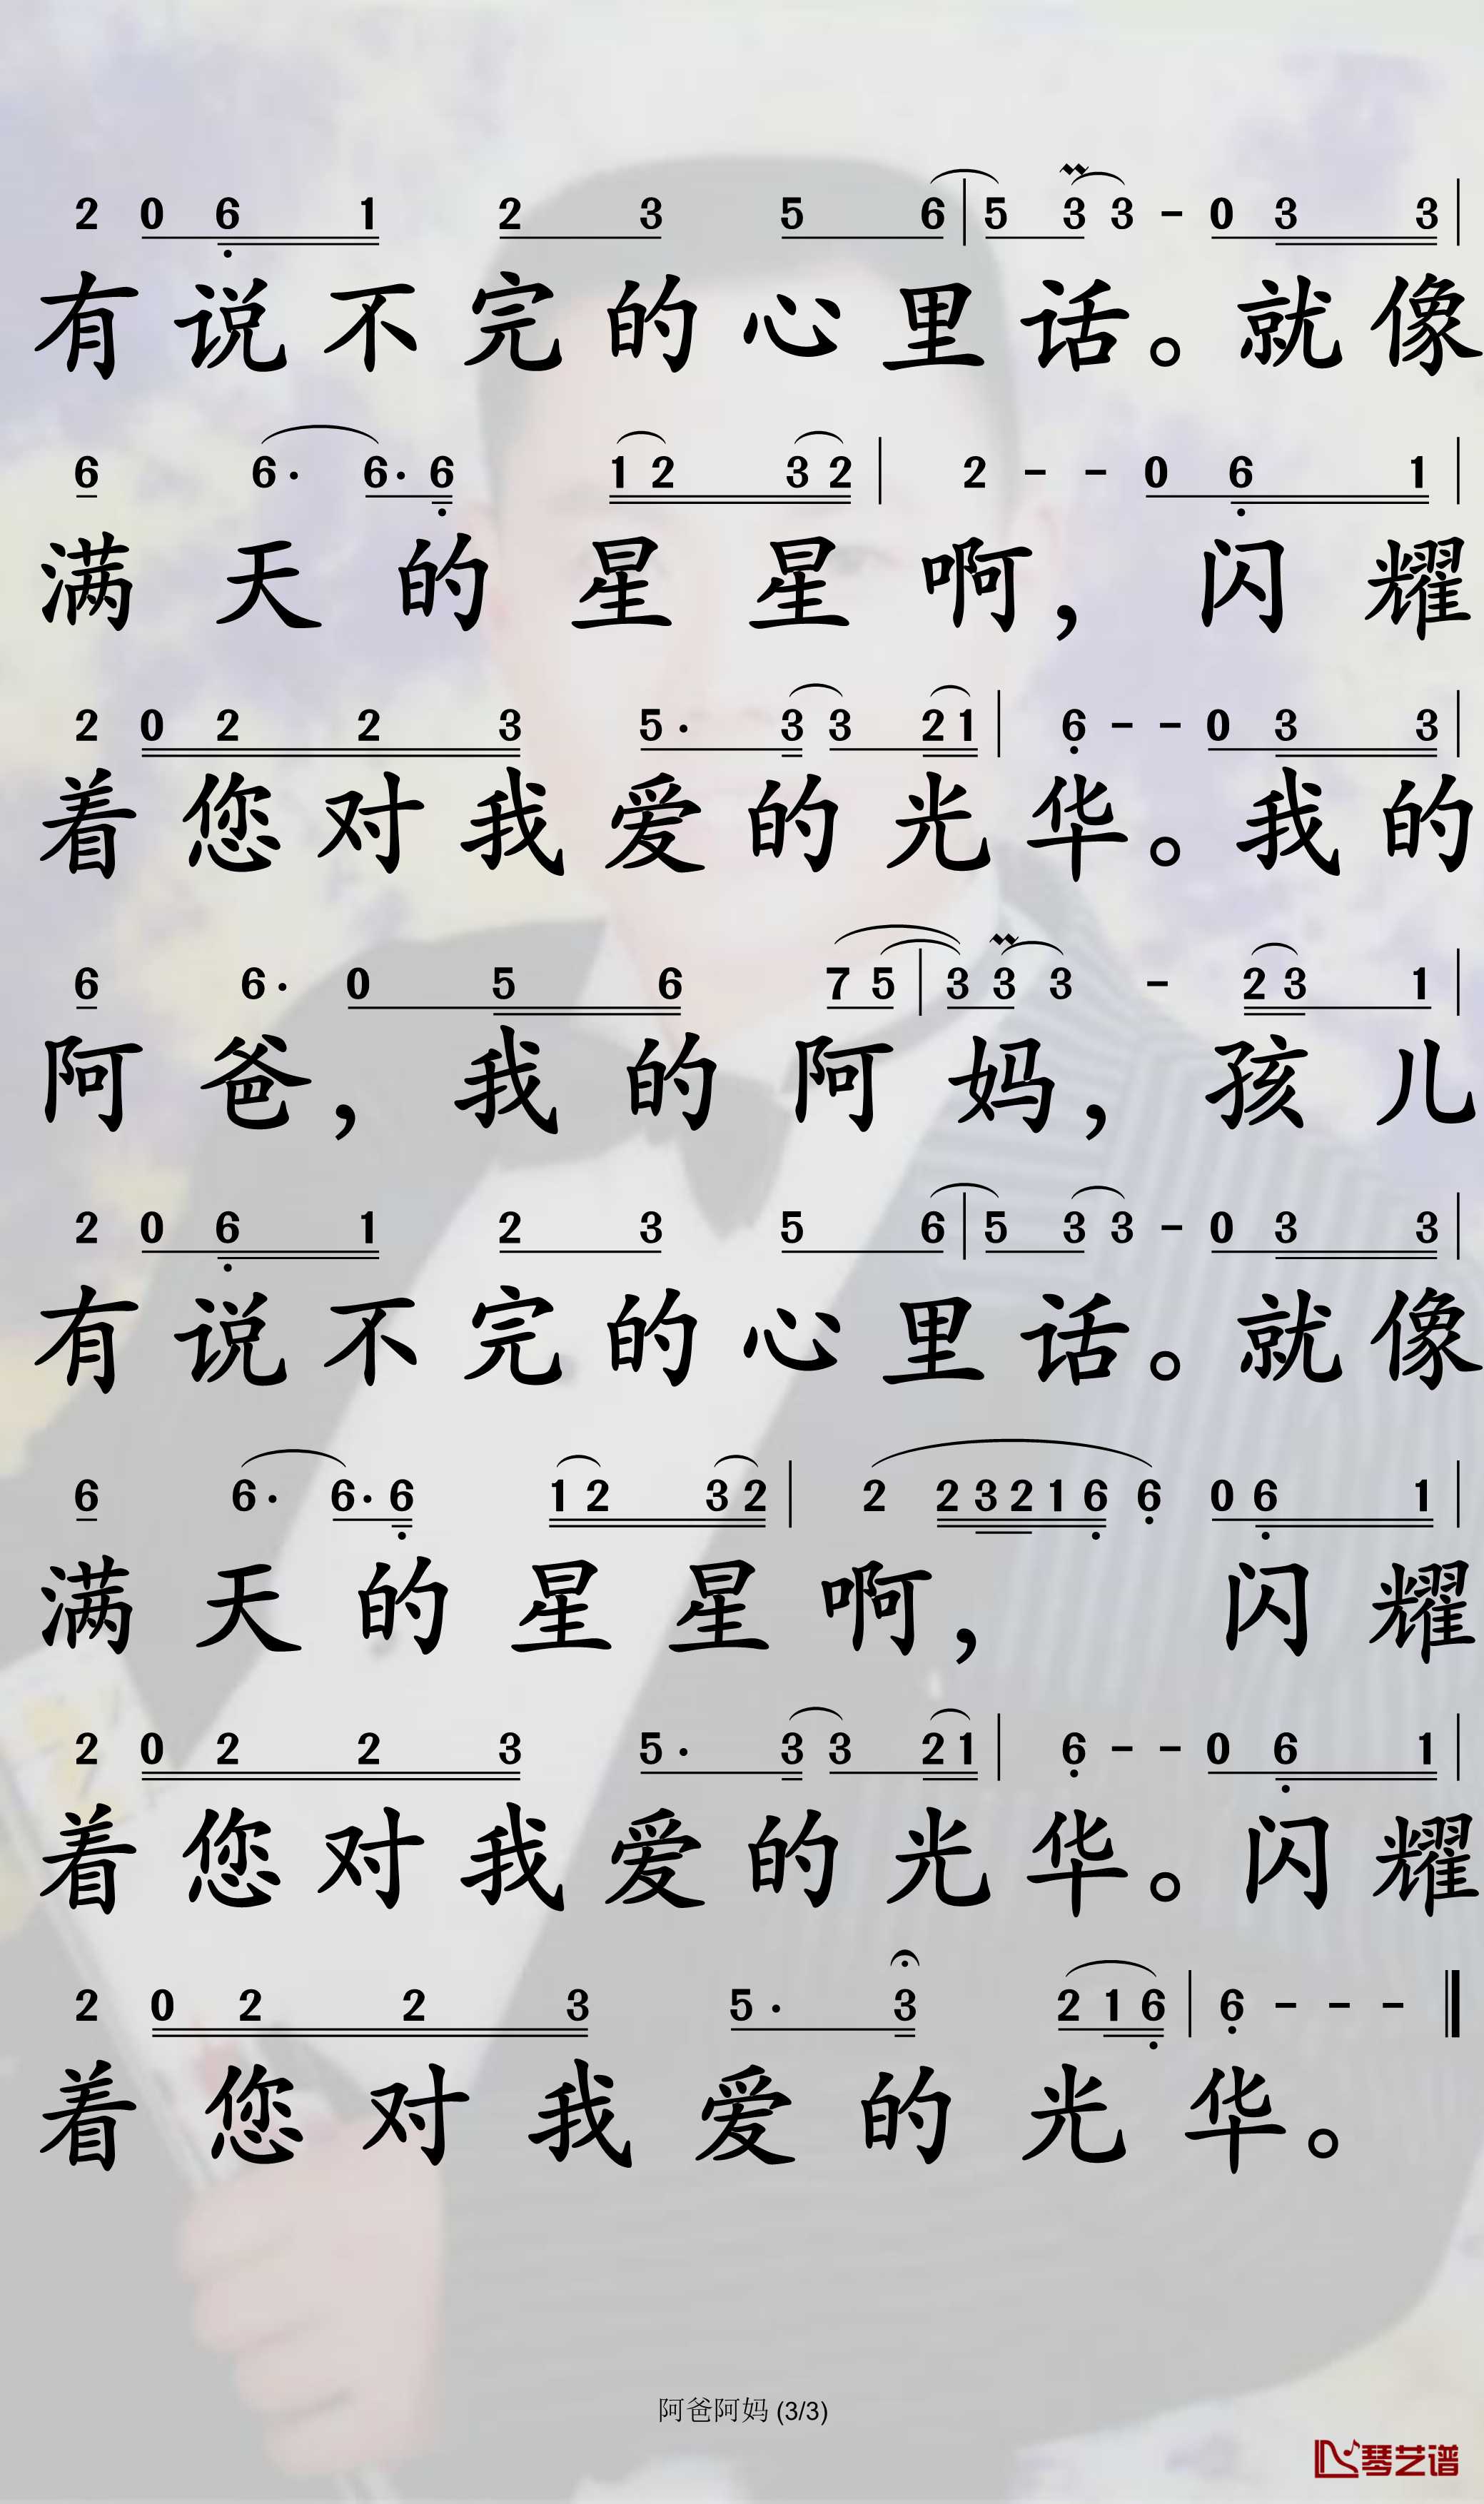 2 0 6 1 2 3 5 6 | 5 3 3 - 0 3 3 |
有说不完的心里话。就像
6 6· 6· 6 1 2 3 2 | 2 - - 0 6 1 |
满天的星星啊，闪耀
2 0 2 2 3 5· 3 3 2 1 | 6 - - 0 3 3 |
着您对我爱的光华。我的
6 6· 0 5 6 7 5 | 3 3 3 - 2 3 1 |
阿爸，我的阿妈，孩儿
2 0 6 1 2 3 5 6 | 5 3 3 - 0 3 3 |
有说不完的心里话。就像
6 6· 6· 6 1 2 3 2 | 2 2 3 2 1 6 6 0 6 1 |
满天的星星啊，闪耀
2 0 2 2 3 5· 3 3 2 1 | 6 - - 0 6 1 |
着您对我爱的光华。闪耀
2 0 2 2 3 5· 3 2 1 6 | 6 - - - ‖
着您对我爱的光华。
阿爸阿妈 (3/3)
琴艺谱